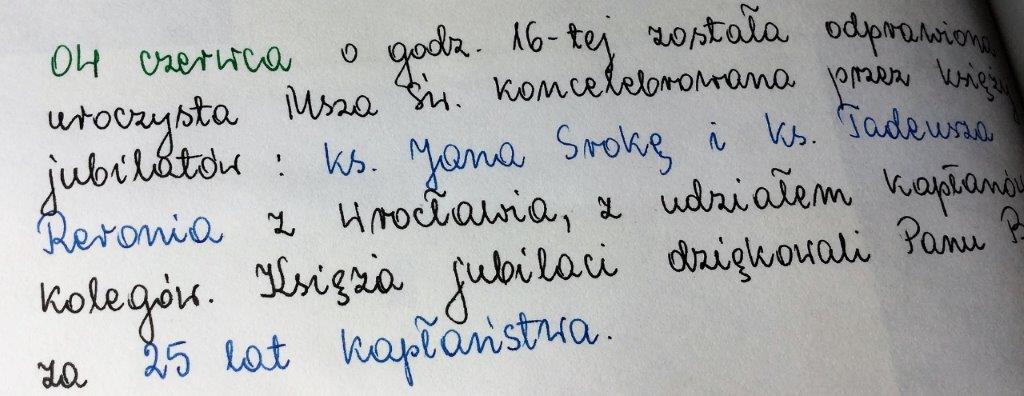 04 czerwca o godz. 16-tej została odprawiona
uroczysta Msza Św. koncelebrowana przez księży
jubilatów : ks. Jana Srokę i ks. Tadeusza
Reronia z Wrocławia, z udziałem kapłanów
kolegów. Księża jubilaci dziękowali Panu B
za 25 lat kapłaństwa.